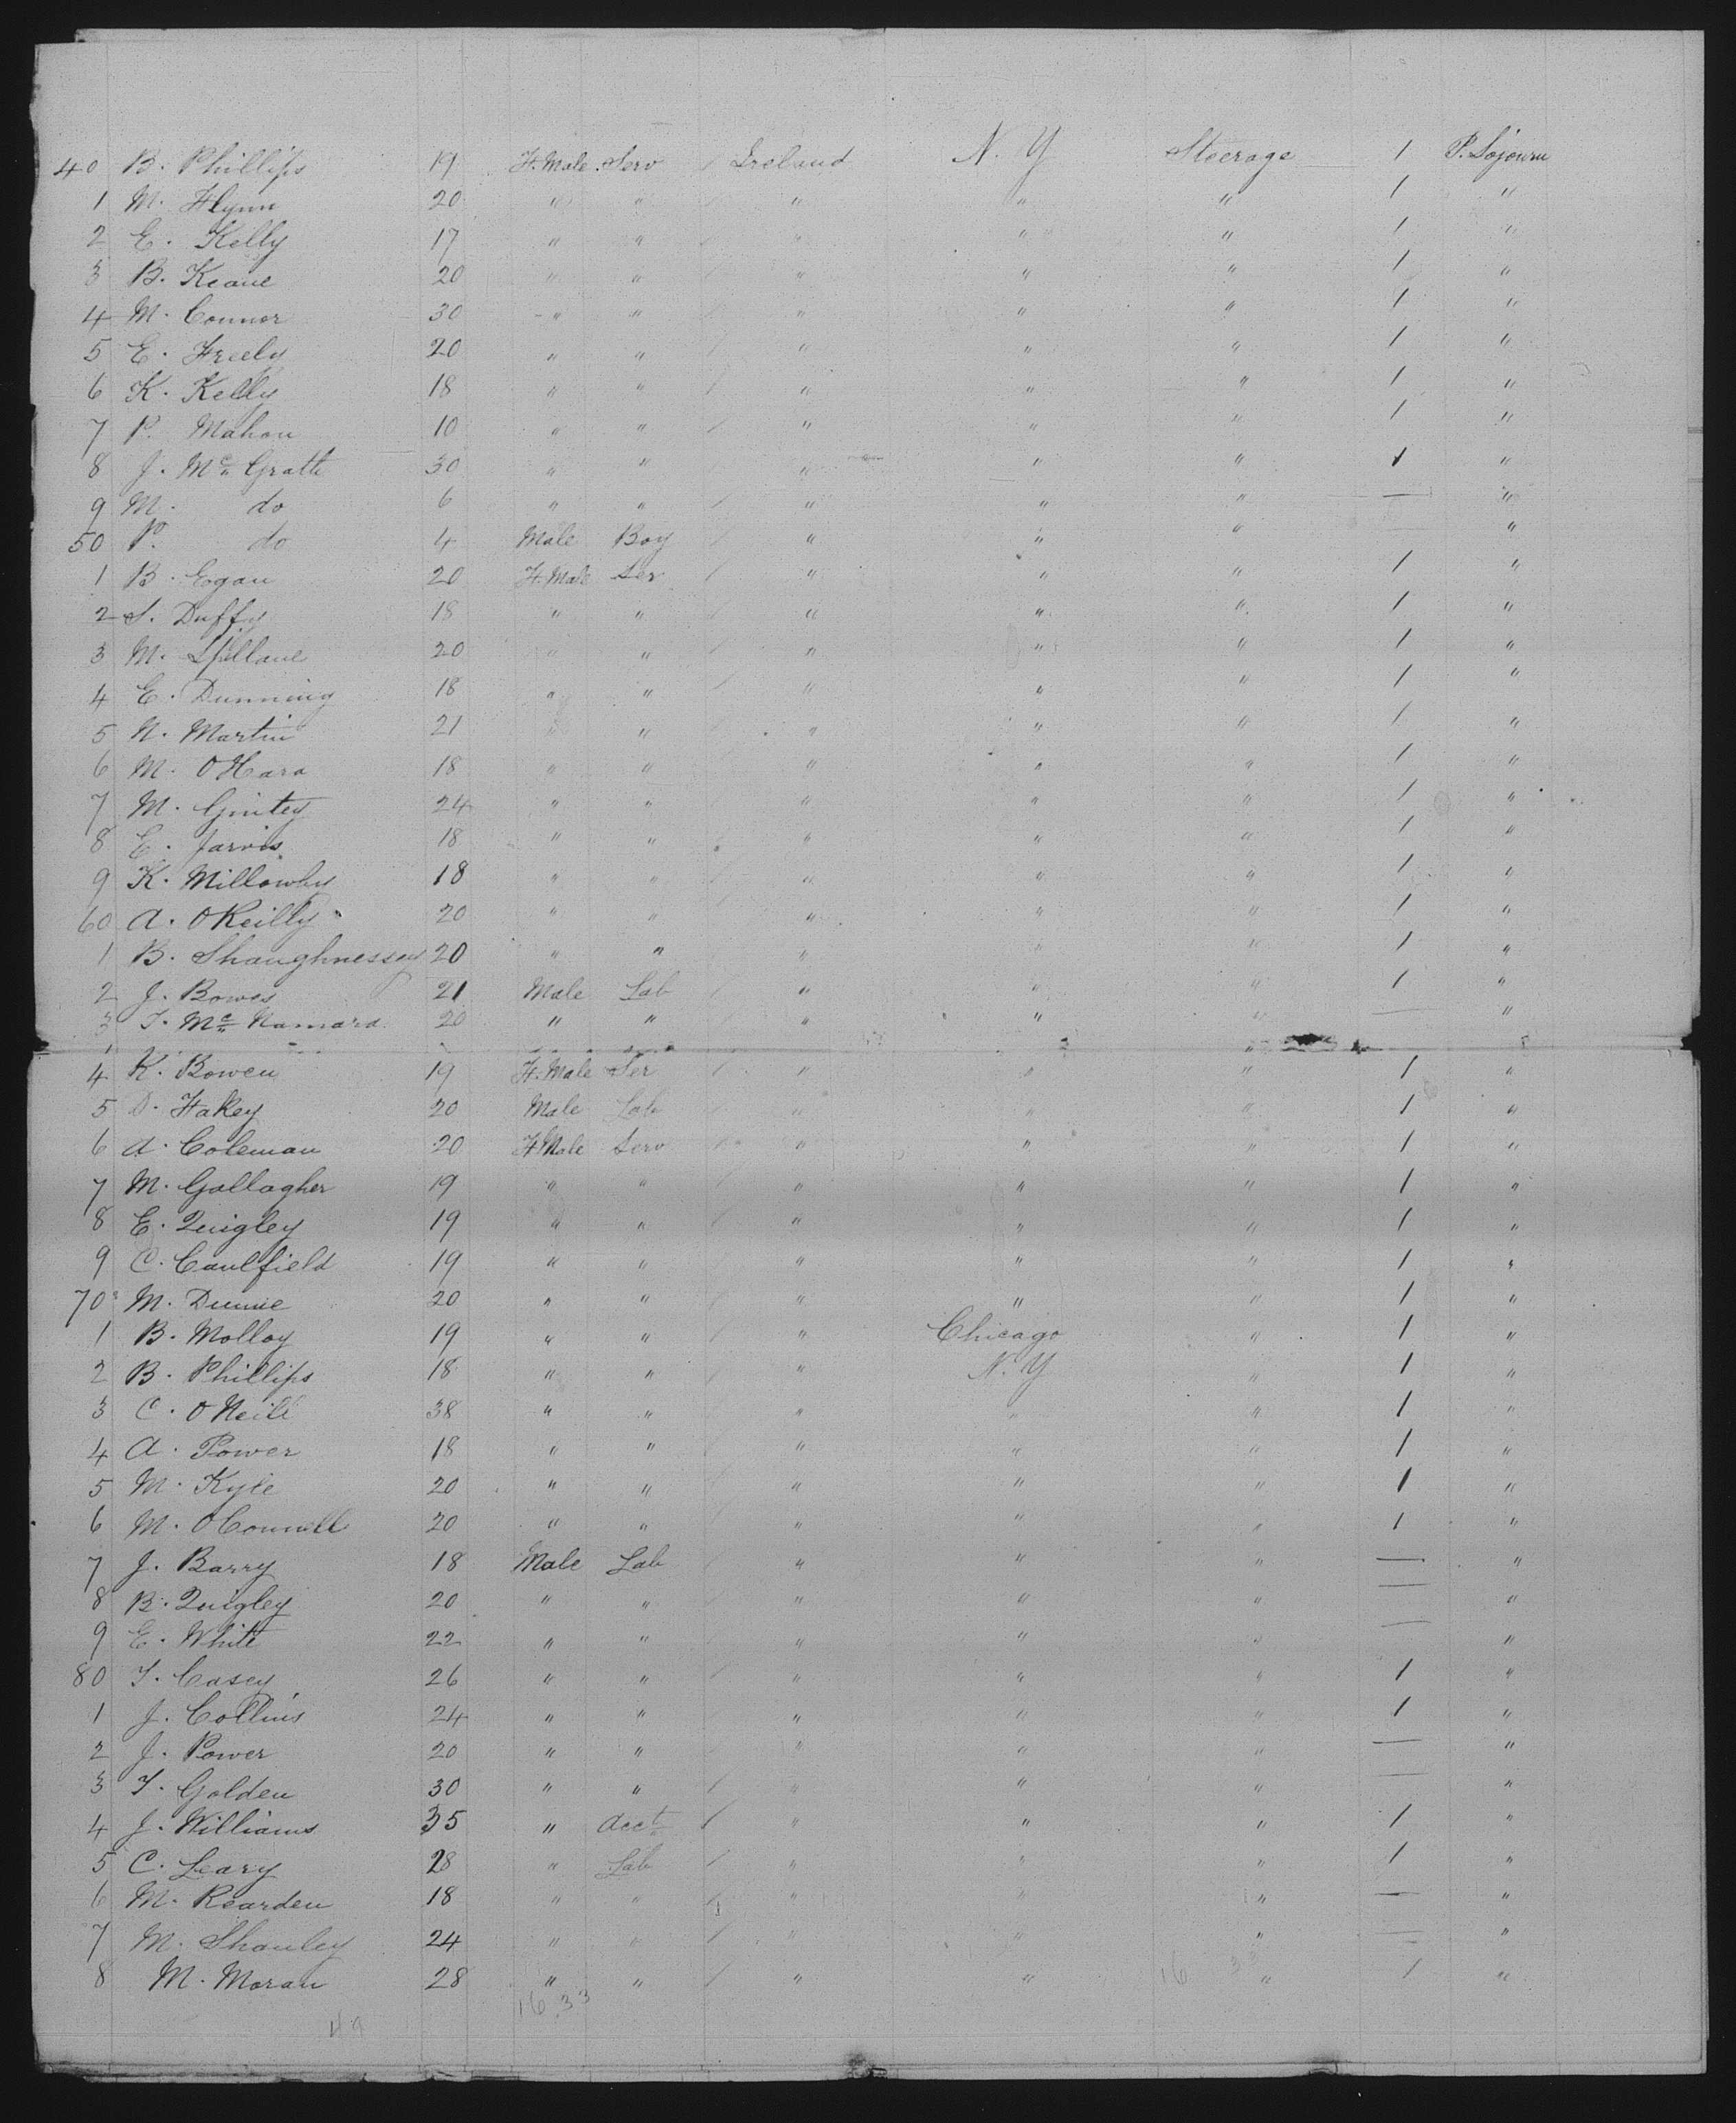 40 B. Phillips 19 F. Male Serv Ireland N. Y Steerage 1 P. Sojourn
1 M. Flynn 20 " " " " " 1 "
2 E. Kelly 17 " " " " " 1 "
3 B. Keane 20 " " " " " 1 "
4 M. Conner 30 " " " " " 1 "
5 E. Freely 20 " " " " " 1 "
6 K. Kelly 18 " " " " " 1 "
7 P. Mahon 10 " " " " " 1 "
8 J. Mc Grath 30 " " " " " 1 "
9 M. do 6 " " " " " — "
50 P. do 4 Male Boy " " " — "
1 B. Egan 20 F. Male Ser " " " 1 "
2 S. Duffy 18 " " " " " 1 "
3 M. Spillane 20 " " " " " 1 "
4 E. Dunning 18 " " " " " 1 "
5 N. Martin 21 " " " " " 1 "
6 M. O Hara 18 " " " " " 1 "
7 M. Gintey 24 " " " " " 1 "
8 E. Jarvis 18 " " " " " 1 "
9 K. Millowby 18 " " " " " 1 "
60 A. O Reilly 20 " " " " " 1 "
1 B. Shaughnessey 20 " " " " " 1 "
2 J. Bowes 21 Male Lab " " " 1 "
3 T. Mc Namara 20 " " " " " — "
4 K. Bowen 19 F. Male Ser " " " 1 "
5 D. Fahey 20 Male Lab " " " 1 "
6 A. Coleman 20 F Male Serv " " " 1 "
7 M. Gallagher 19 " " " " " 1 "
8 E. Quigley 19 " " " " " 1 "
9 C. Caulfield 19 " " " " " 1 "
70 M. Dunne 20 " " " " " 1 "
1 B. Molloy 19 " " " Chicago " 1 "
2 B. Phillips 18 " " " N. Y " 1 "
3 C. O Neill 38 " " " " " 1 "
4 A. Power 18 " " " " " 1 "
5 M. Kyle 20 " " " " " 1 "
6 M. O Connell 20 " " " " " 1 "
7 J. Barry 18 Male Lab " " " — "
8 B. Quigley 20 " " " " " — "
9 E. White 22 " " " " " — "
80 T. Casey 26 " " " " " 1 "
1 J. Collins 24 " " " " " 1 "
2 J. Power 20 " " " " " — "
3 T. Golden 30 " " " " " — "
4 J. Williams 35 " Acct " " " 1 "
5 C. Leary 28 " Lab " " " 1 "
6 M. Rearden 18 " " " " " — "
7 M. Shanley 24 " " " " " — "
8 M. Moran 28 " " " " " 1 "
16 33
49